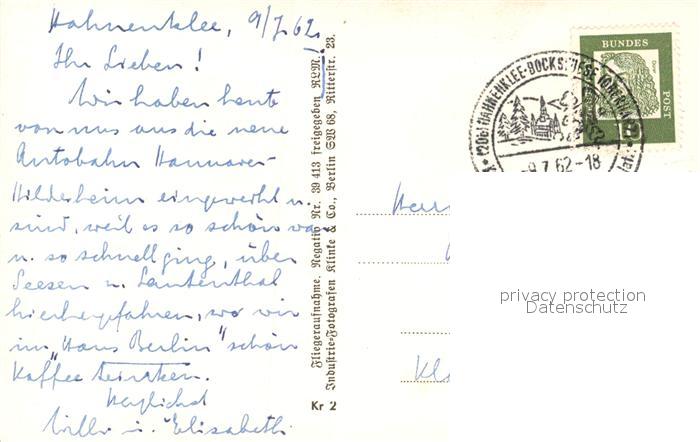 Hahnenklee, 9/7.62.
Ihr Lieben!
Wir haben heute
von uns aus die neue
Autobahn Hannover-
Hildesheim eingeweiht u.
sind, weil es so schön war
u. so schnell ging, über
Seesen u. Lautenthal
hierhergefahren, wo wir
im "Haus Berlin" schön
Kaffee trinken.
Herzlichst
Willi u. Elisabeth
Fliegeraufnahme. Negativ Nr. 39 413 freigegeben RLM.
Industrie-Fotografen Klinke & Co., Berlin SW 68, Ritterstr. 23.
Kr 2
HAHNENKLEE-BOCKSWIESE (OBERHARZ)
-9.7.62-18
BUNDES
POST
privacy protection
Datenschutz